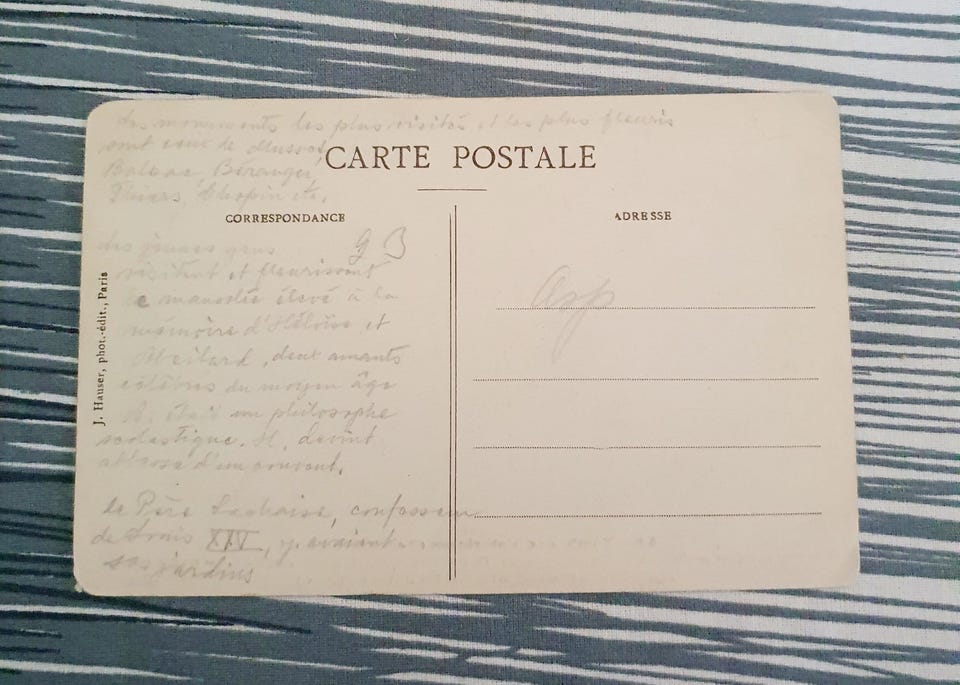 Les monuments les plus visités et les plus fleuris
sont ceux de Musset,
CARTE POSTALE
Balzac, Béranger
Thiers, Chopin etc.
CORRESPONDANCE
ADRESSE
Les jeunes gens
visitent et fleurissent
le mausolée élevé à la
mémoire d'Héloïse et
Abeilard, deux amants
célèbres du moyen âge
A. était un philosophe
scolastique. H. devint
abbesse d'un couvent.
le Père Lachaise, confesseur
de Louis XIV, y avaient
ses jardins
J. Hauser, phot.-édit., Paris